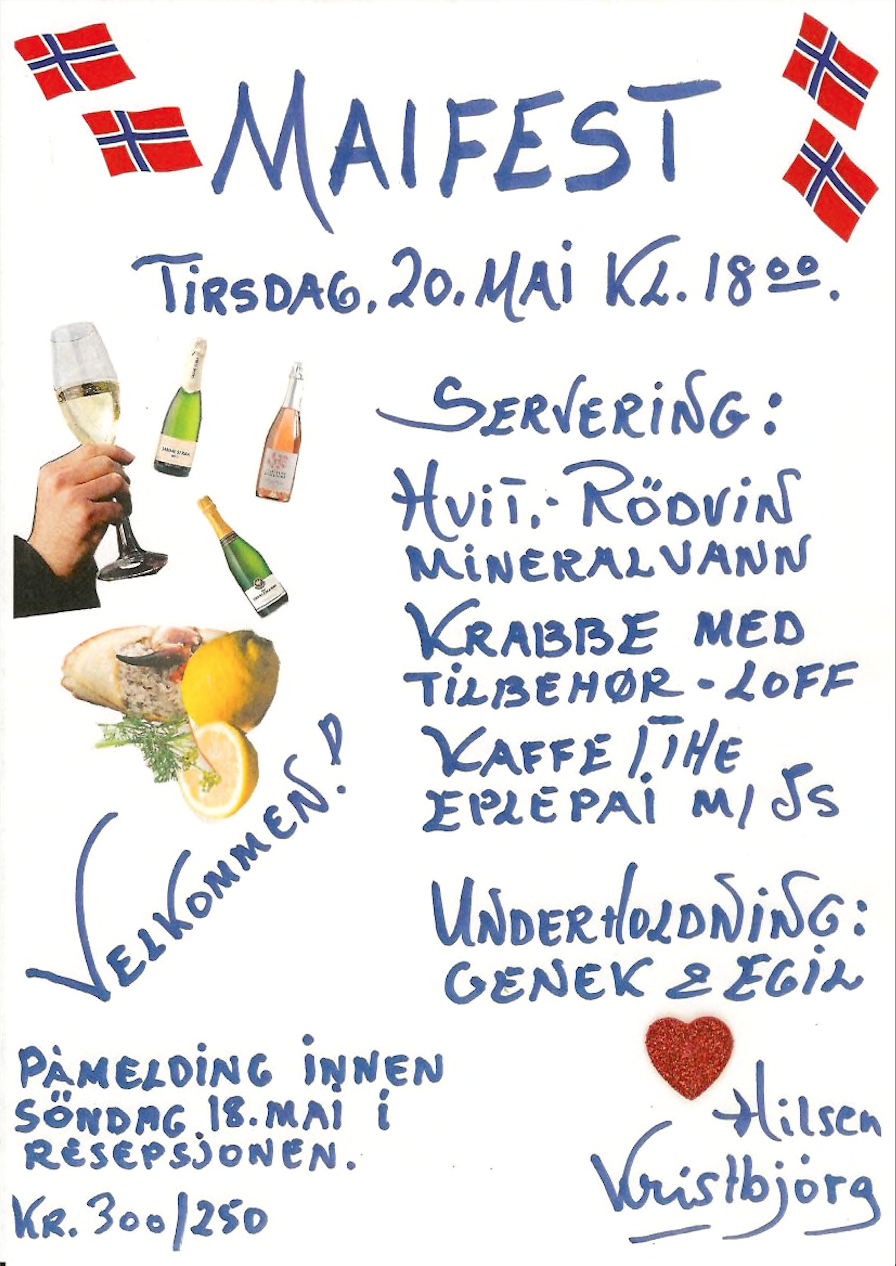 MAIFEST
TIRSDAG, 20. MAI KL. 18 00.
SERVERING:
HVIT,- RÖDVIN
MINERALVANN
KRABBE MED
TILBEHØR - LOFF
KAFFE / THE
EPLEPAI M/ IS
VELKOMMEN!
UNDERHOLDNING:
GENEK & EGIL
PÅMELDING INNEN
SÖNDAG 18. MAI I
RESEPSJONEN.
KR. 300/250
Hilsen
Kristbjörg